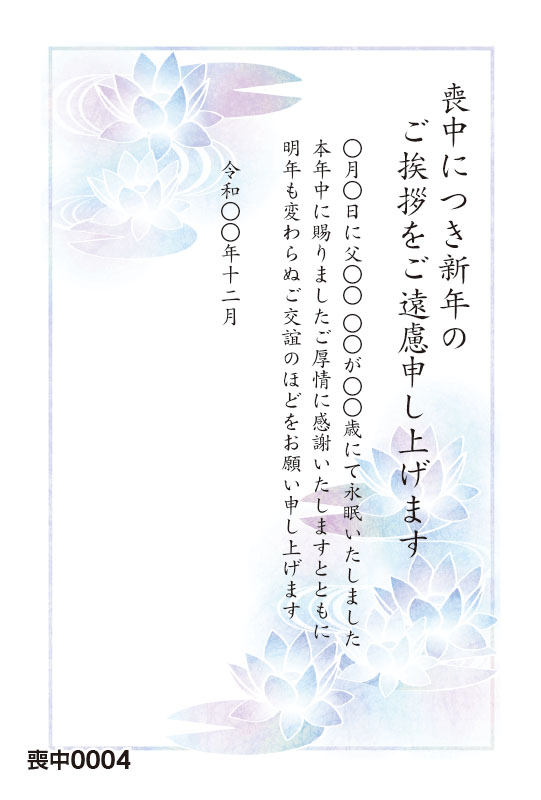 喪中につき新年の
ご挨拶をご遠慮申し上げます
〇月〇日に父〇〇 〇〇が〇〇歳にて永眠いたしました
本年中に賜りましたご厚情に感謝いたしますとともに
明年も変わらぬご交誼のほどをお願い申し上げます
令和〇〇年十二月
喪中0004